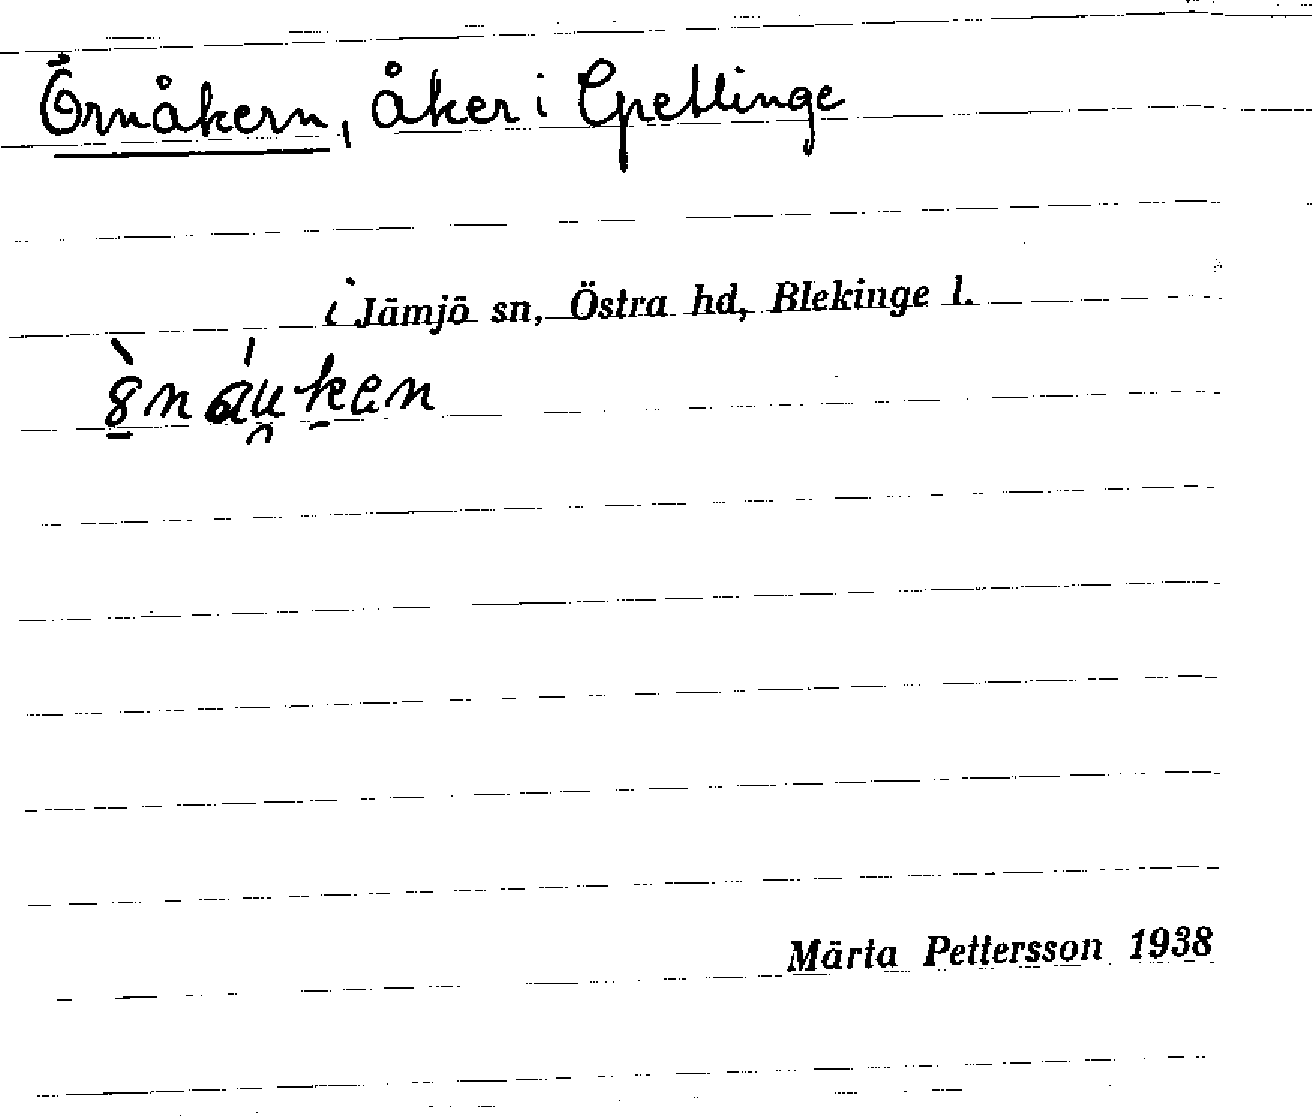 Örnåkern, åker i Epetlinge
i Jämjö sn, Östra hd, Blekinge l.
Märta Pettersson 1938